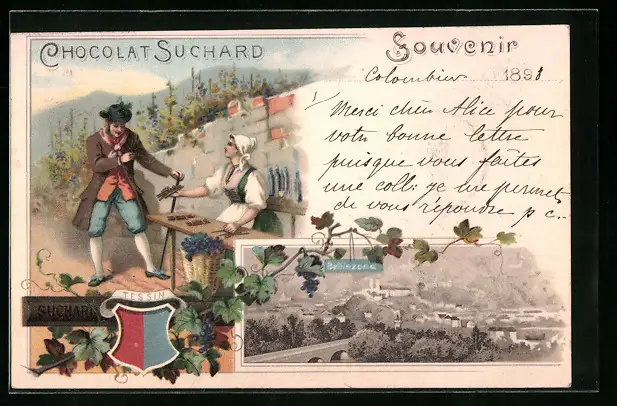 CHOCOLAT SUCHARD
Souvenir
Colombier 1898
Merci chèr Alice pour
votre bonne lettre
puisque vous faites
une coll: je me permet
de vous répondre p c..
Bellinzona
TESSIN
SUCHARD